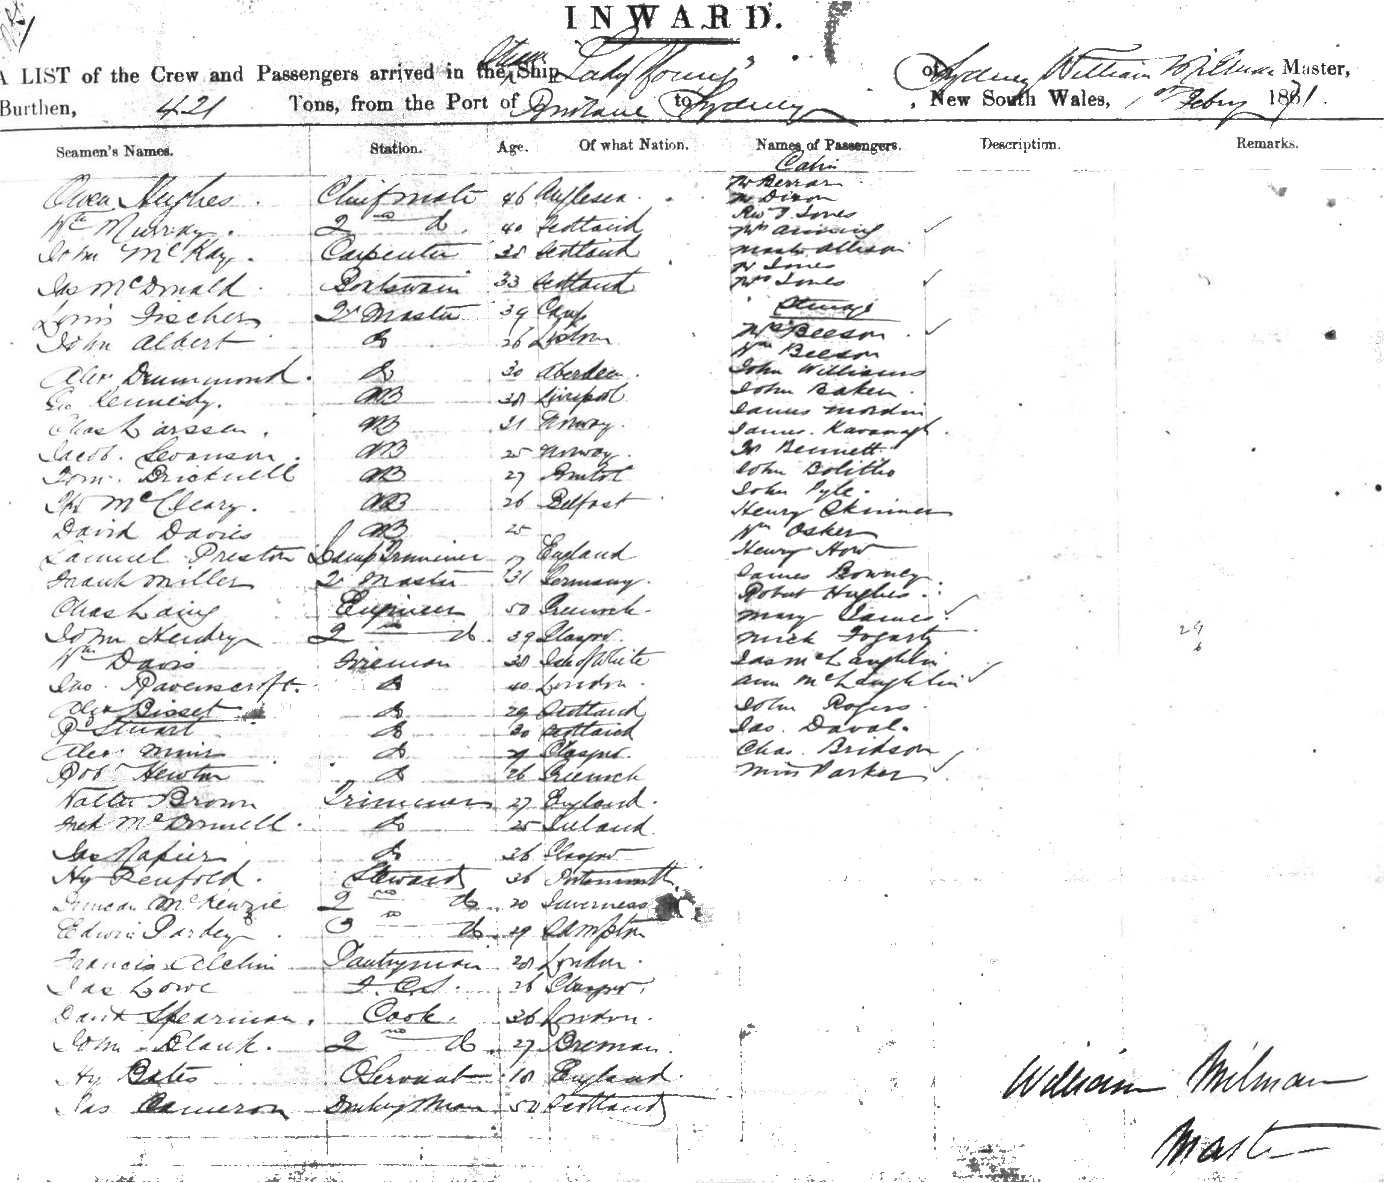 INWARD.
A LIST of the Crew and Passengers arrived in the Ship "Lady Young" of Sydney William Milman Master,
Burthen, 421 Tons, from the Port of Brisbane to Sydney, New South Wales, 1st Febry 1871.
Seamen's Names. Station. Age. Of what Nation. Names of Passengers. Description. Remarks.
Cabin
Owen Hughes. Chief mate 46 Anglesea. Mr Berran
Mr Dixon
Wm Murray. 2nd do. 40 Scotland Revd Jones
John McKay. Carpenter 38 Scotland
Jas McDonald Boatswain 33 Scotland Mr Jones
Mrs Jones
Louis Fischer Qr Master 39 Steerage
John Albert do 26 Lisbon Mrs Beeson
Wm Beeson
Alex Drummond. do 30 Aberdeen. John Williams
Geo Kennedy. AB 38 Liverpool John Baker.
Chas Larssen. AB 21 Norway. James
Jacob Swanson. AB 25 Norway. James Kavanagh
Tom Bricknell AB 27 Bristol Bennett
McCleary. AB 26 Belfast John Bolitho
John Pyle.
David Davies AB 25 Henry Skinner
Wm Osker
Samuel Preston Lamp Trimmer England Henry How
Frank Miller Qr Master 31 Germany. James
Chas Laing Engineer 50 Greenock. Robert Hughes.
Mary James.
John Hendry 2nd do. 39 Glasgow. Mick Fogarty 29
Wm Davis Fireman 38 Isle of White Jas McLaughlin 6
Jno. Ravenscroft. do 40 London. Ann McLaughlin
Alex Bisset do 29 Scotland John Rogers
R Stuart do 30 Scotland Jas. Daval.
Alex Muir do 29 Glasgow. Chas. Bridson
Robt Newton do 26 Greenock Miss Parker
Walter Brown Trimmers 27 England.
Fredk McDonnell. do 25 Ireland
Jas Napier do 26 Glasgow
Hy Penfold. Steward 36 Portsmouth.
Duncan McKenzie 2nd do. 20 Inverness
Edwin Pardey 3 do. 29
Francis Alchin Pantryman 28 London.
Jas Lowe F.C.S. 26 Glasgow.
David Spearman. Cook. 36 London.
John Blank. 2nd do. 27 Breman.
Hy Bates O Servant 18 England.
Jas Cameron Donkey Man 50 Scotland
William Milman
Master